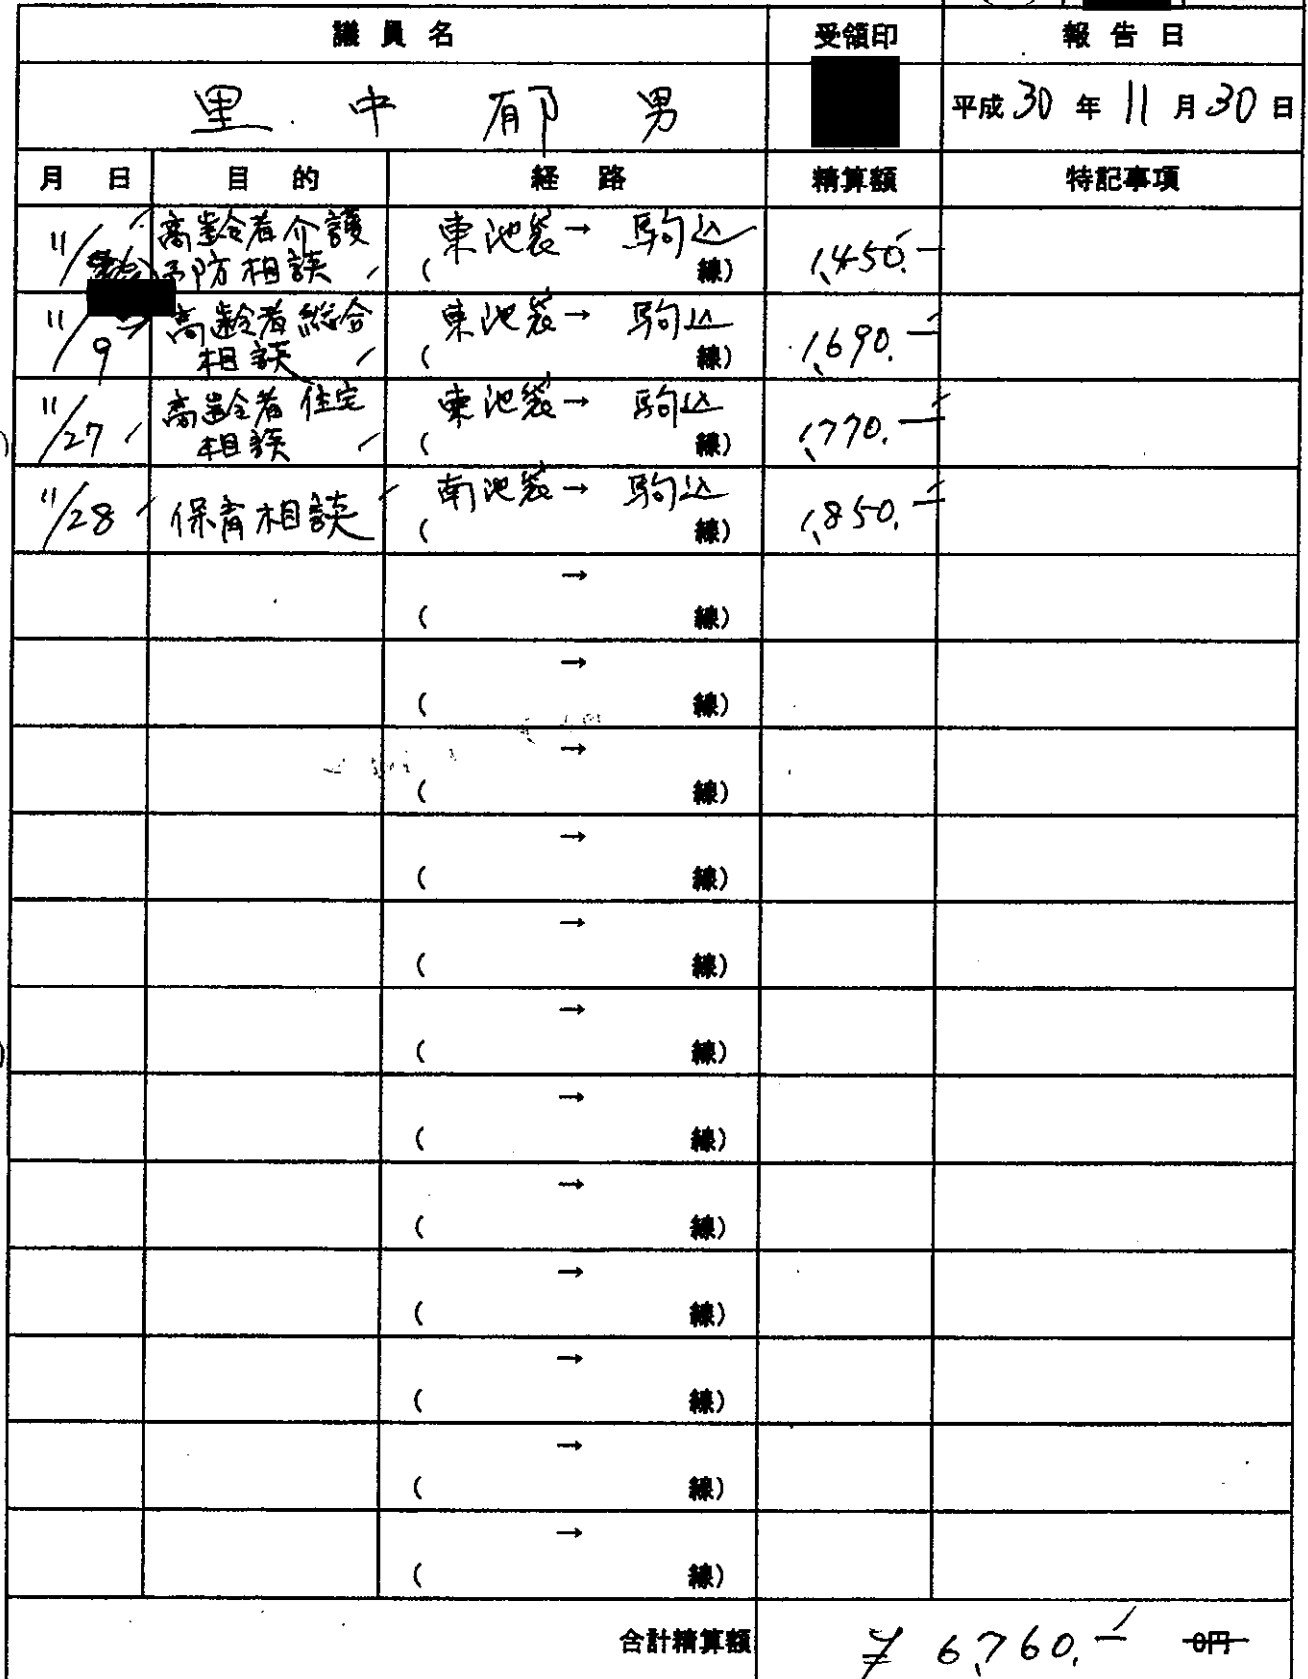 議員名 受領印 報告日
里中郁男 平成30年11月30日
月日 目的 経路 精算額 特記事項
11/ 高齢者介護 東池袋→駒込 1,450.-
予防相談 ( 線)
11/9 高齢者総合 東池袋→駒込 1,690.-
相談 ( 線)
11/27 高齢者住宅 東池袋→駒込 1,770.-
相談 ( 線)
11/28 保育相談 南池袋→駒込 1,850.-
( 線)
→
( 線)
→
( 線)
→
( 線)
→
( 線)
→
( 線)
→
( 線)
→
( 線)
→
( 線)
→
( 線)
→
( 線)
→
( 線)
→
( 線)
合計精算額 ¥6,760.- 0円